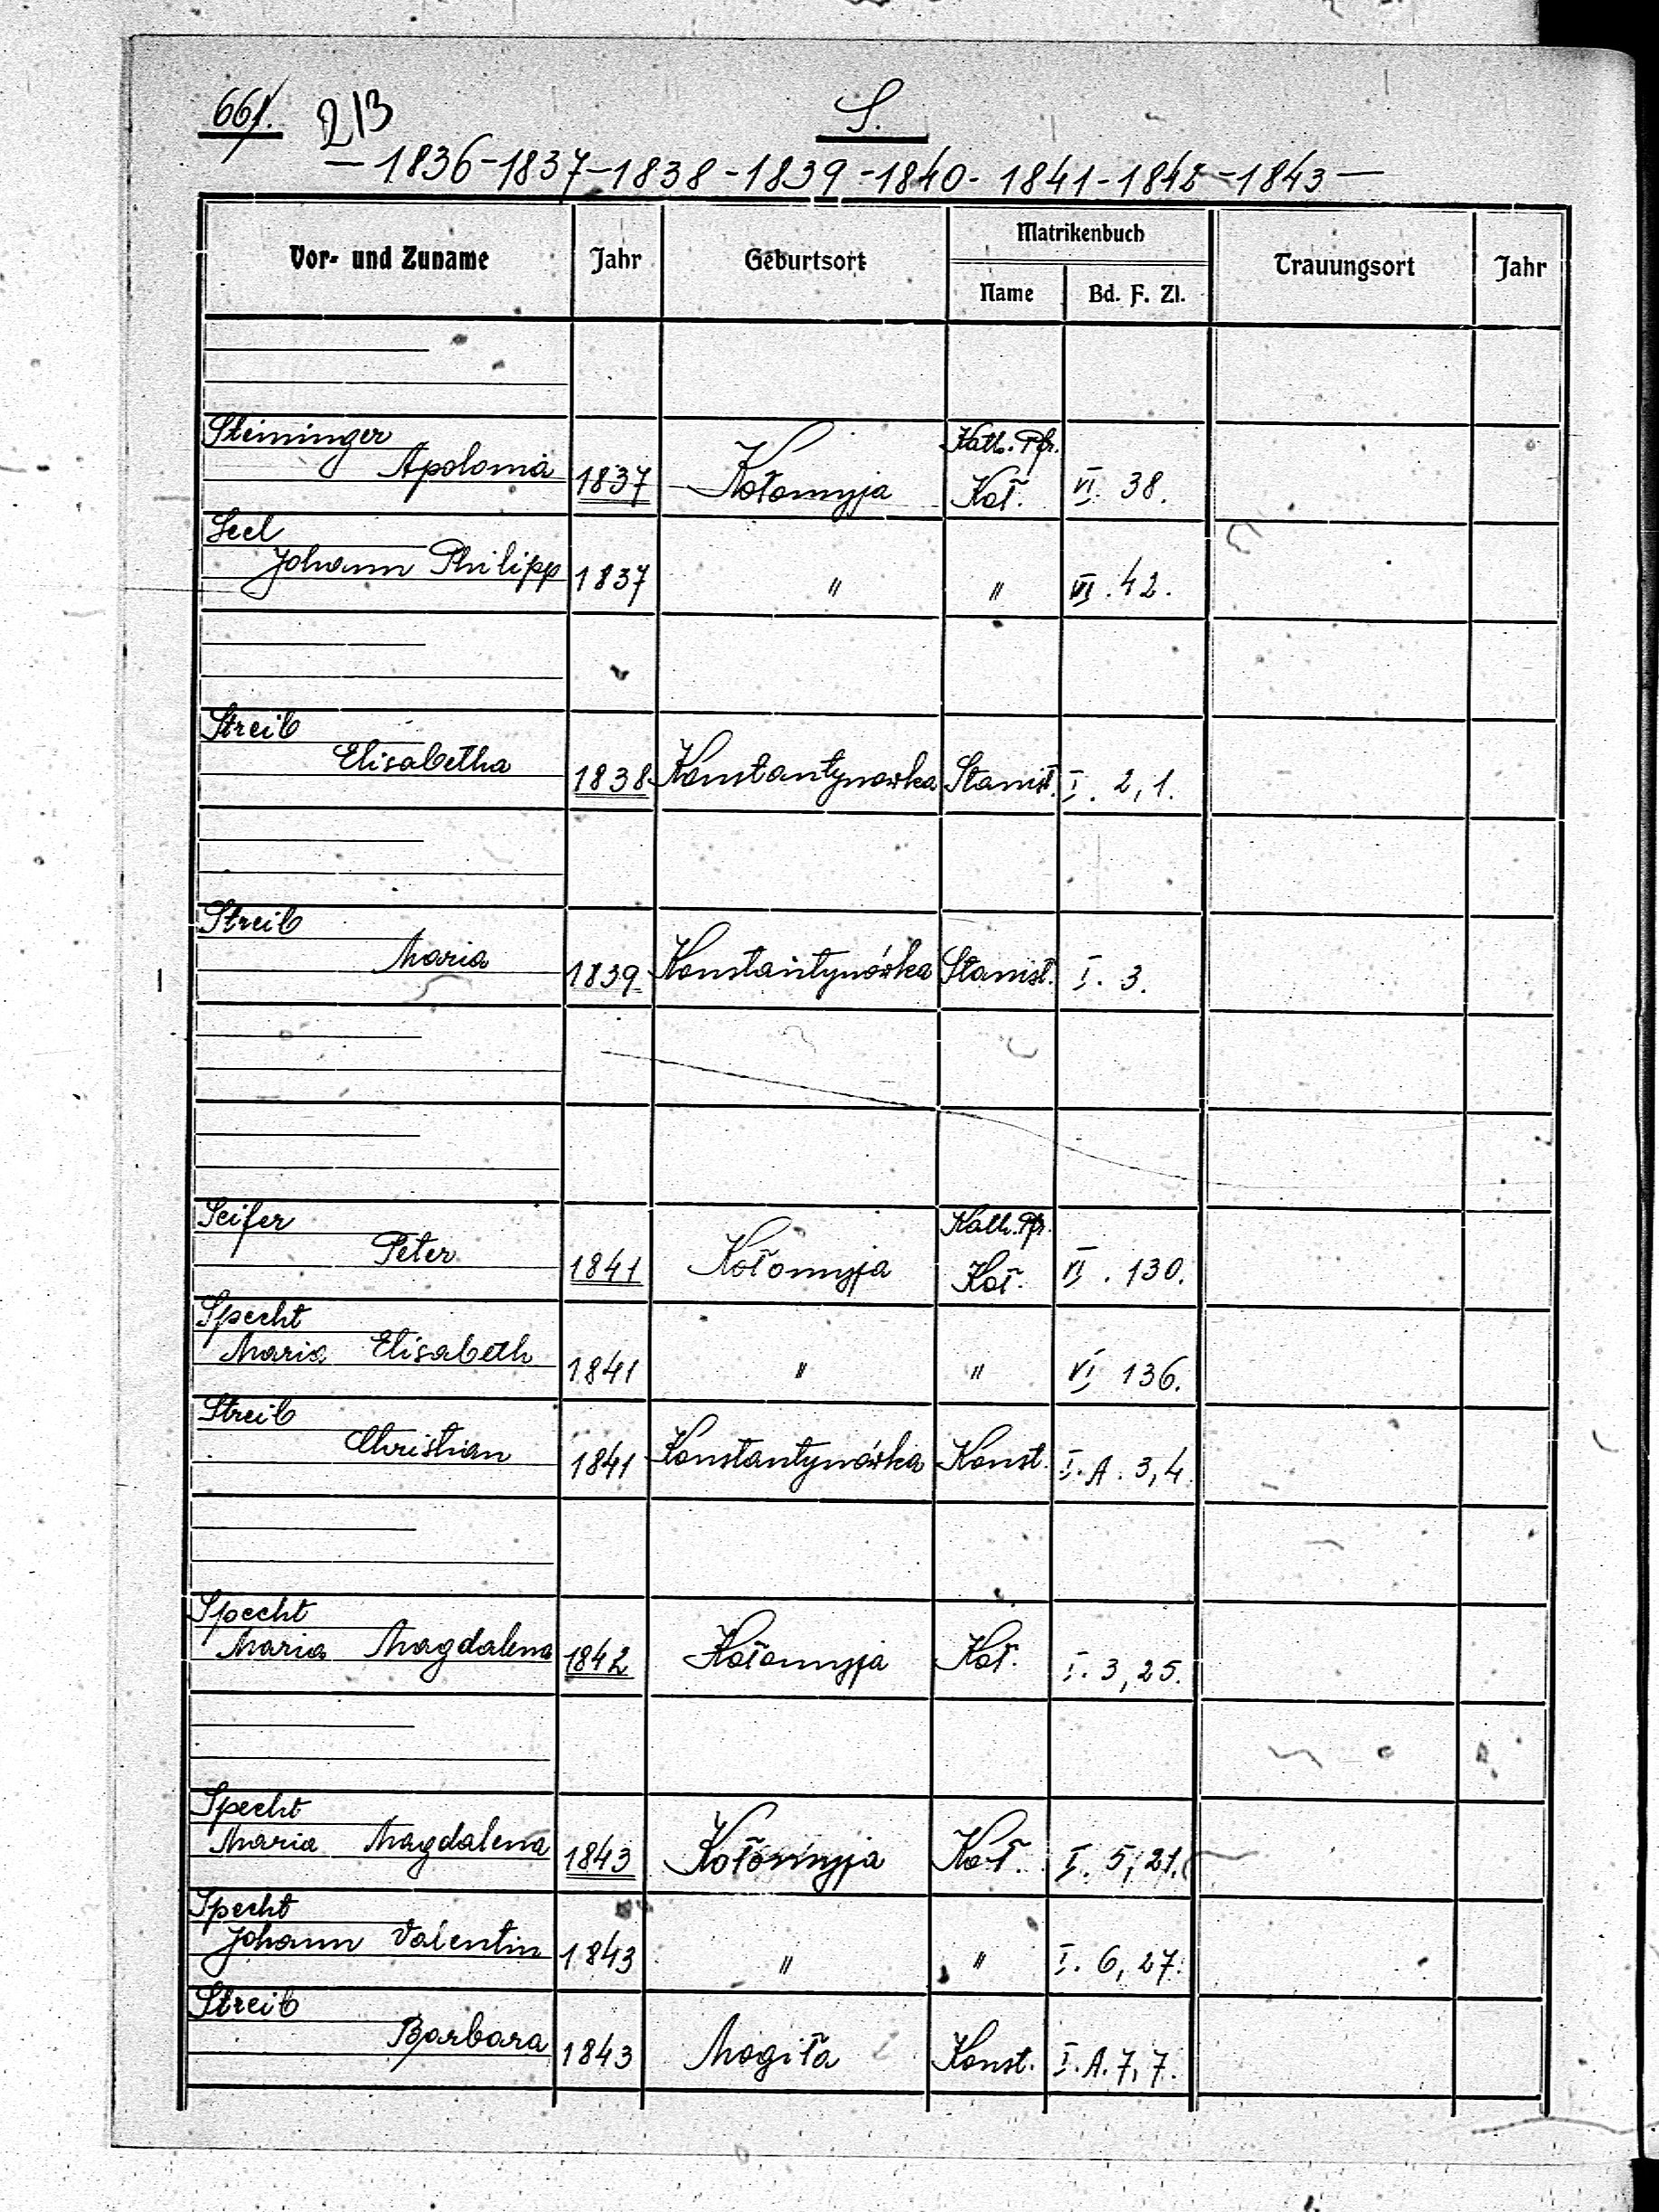 661. 213 S.
— 1836-1837-1838-1839-1840-1841-1842-1843 —
Vor- und Zuname Jahr Geburtsort Matrikenbuch Trauungsort Jahr
Name Bd. F. Zl.
Steininger Kath. Pfr.
Apolonia 1837 Kołomyja Koł. VI. 38.
Seel
Johann Philipp 1837 " " VI. 42.
Streib
Elisabetha 1838 Konstantynówka Stanisł. I. 2, 1.
Streib
Maria 1839 Konstantynówka Stanisł. I. 3.
Seifer Kath. Pfr.
Peter 1841 Kołomyja Koł. VI. 130.
Specht
Maria Elisabeth 1841 " " VI 136.
Streib
Christian 1841 Konstantynówka Konst. I. A. 3, 4.
Specht
Maria Magdalena 1842 Kołomyja Koł. I. 3, 25.
Specht
Maria Magdalena 1843 Kołomyja Koł. I. 5, 21.
Specht
Johann Valentin 1843 " " I. 6, 27.
Streib
Barbara 1843 Mogiła Konst. I. A. 7, 7.